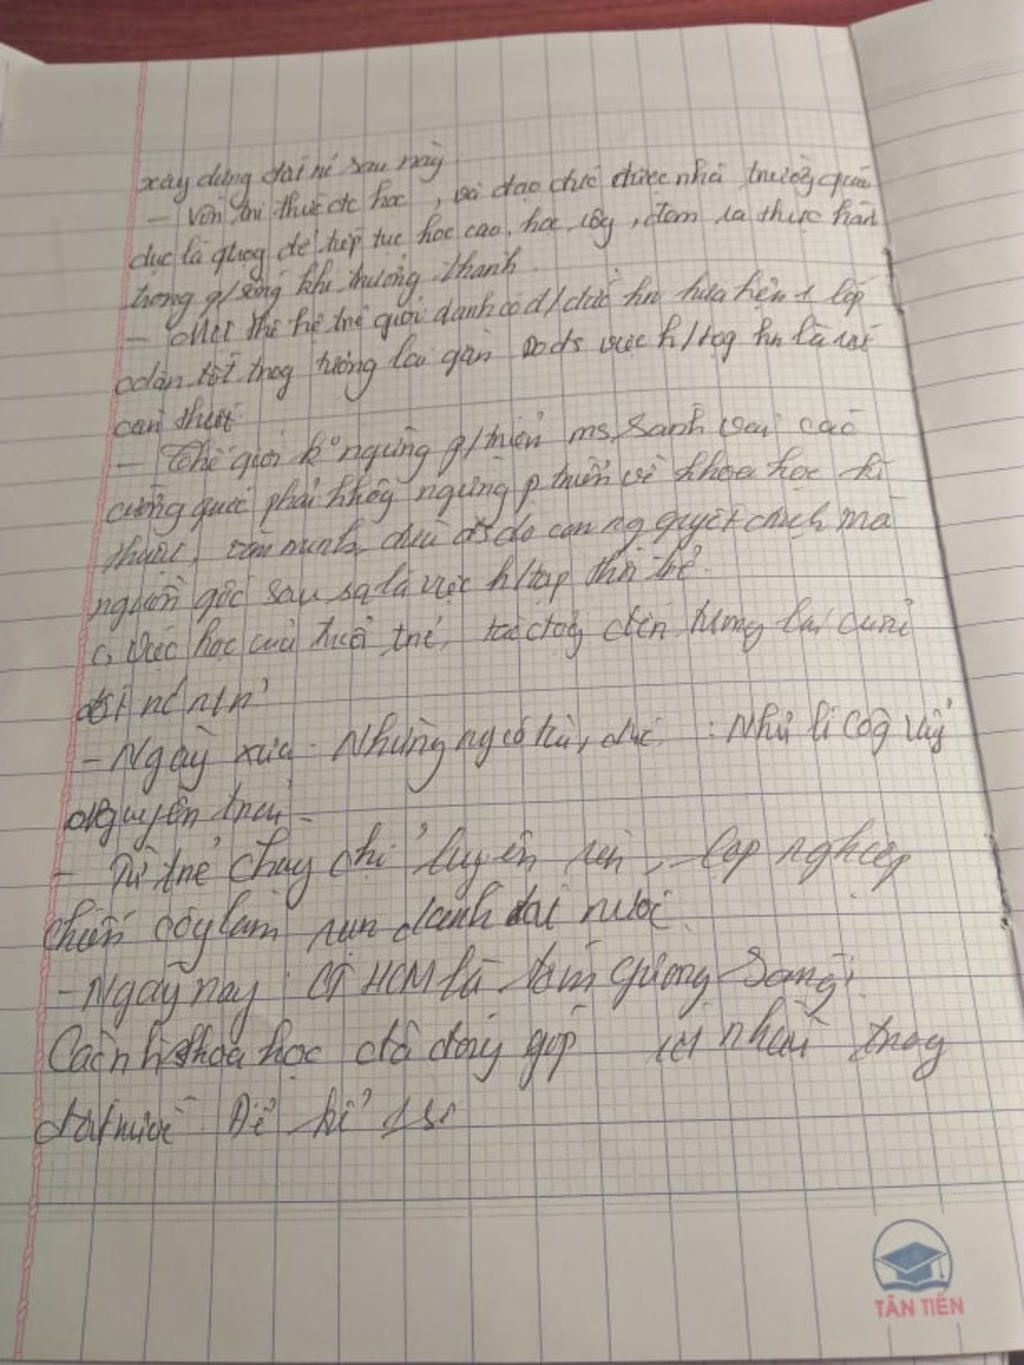 xây dựng đất nc sau này
- Vốn tri thức đc học, và đạo đức được nhà trường giáo
dục là quog để tiếp tục học cao, học, đem ra thực hành
trong c/sống khi trưởng thành.
- Một thế hệ trẻ giỏi dành có đ/đức hn hứa hẹn 1 lớp
cdân tốt trog tương lai gần Do đó việc h/tập hn là rất
cần thiết.
- Thế giới k° ngừng p/triển ms sánh vai các
cường quốc phải không ngừng p triển về khoa học kĩ
thuật, văn minh, điều đó do con ng quyết định mà
nguồn gốc sâu sa là việc h/tập thời trẻ.
c, Việc học của tuổi trẻ, tác động đến tương lai của
đất nc ntn?
- Ngày xưa: Những ng có tài, đức: Như lí Côg Uẩn
Nguyễn trãi
- Từ trẻ chăm chỉ luyện rèn, lập nghiệp
chiến công làm rạn danh đất nước.
- Ngày nay: CT HCM là tấm gương sáng.
Các nhà khoa học đã đóng góp rất nhiều trog
đất nước. Để kể 1 số
TÂN TIẾN